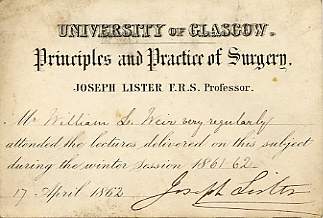 UNIVERSITY OF GLASGOW.
Principles and Practice of Surgery.
JOSEPH LISTER F.R.S. Professor.
Mr William L. Weir very regularly
attended the lectures delivered on this subject
during the winter session 1861-62.
17 April 1862
Joseph Lister